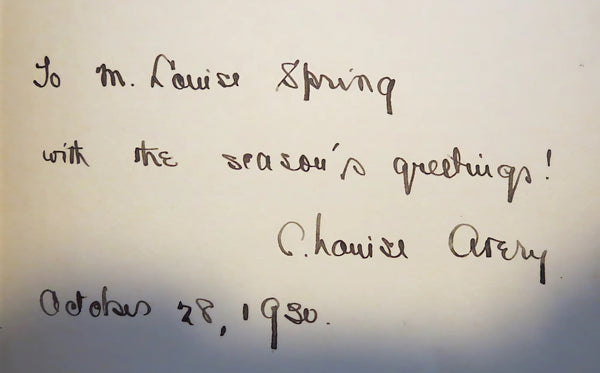 To M. Louise Spring
with the season's greetings!
C. Louise Avery
October 28, 1930.